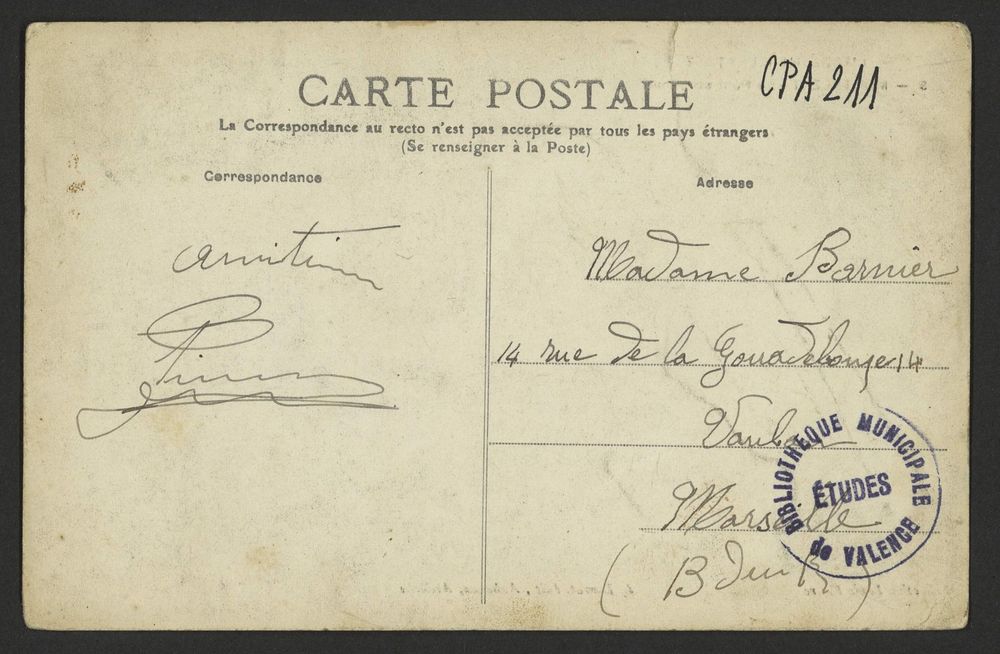 CARTE POSTALE
CPA 211
La Correspondance au recto n'est pas acceptée par tous les pays étrangers
(Se renseigner à la Poste)
Correspondance
Adresse
Madame Barnier
14 rue de la Gouadeloupe 14
Vauban
Marseille
(B du R)
BIBLIOTHEQUE MUNICIPALE
ÉTUDES
de VALENCE